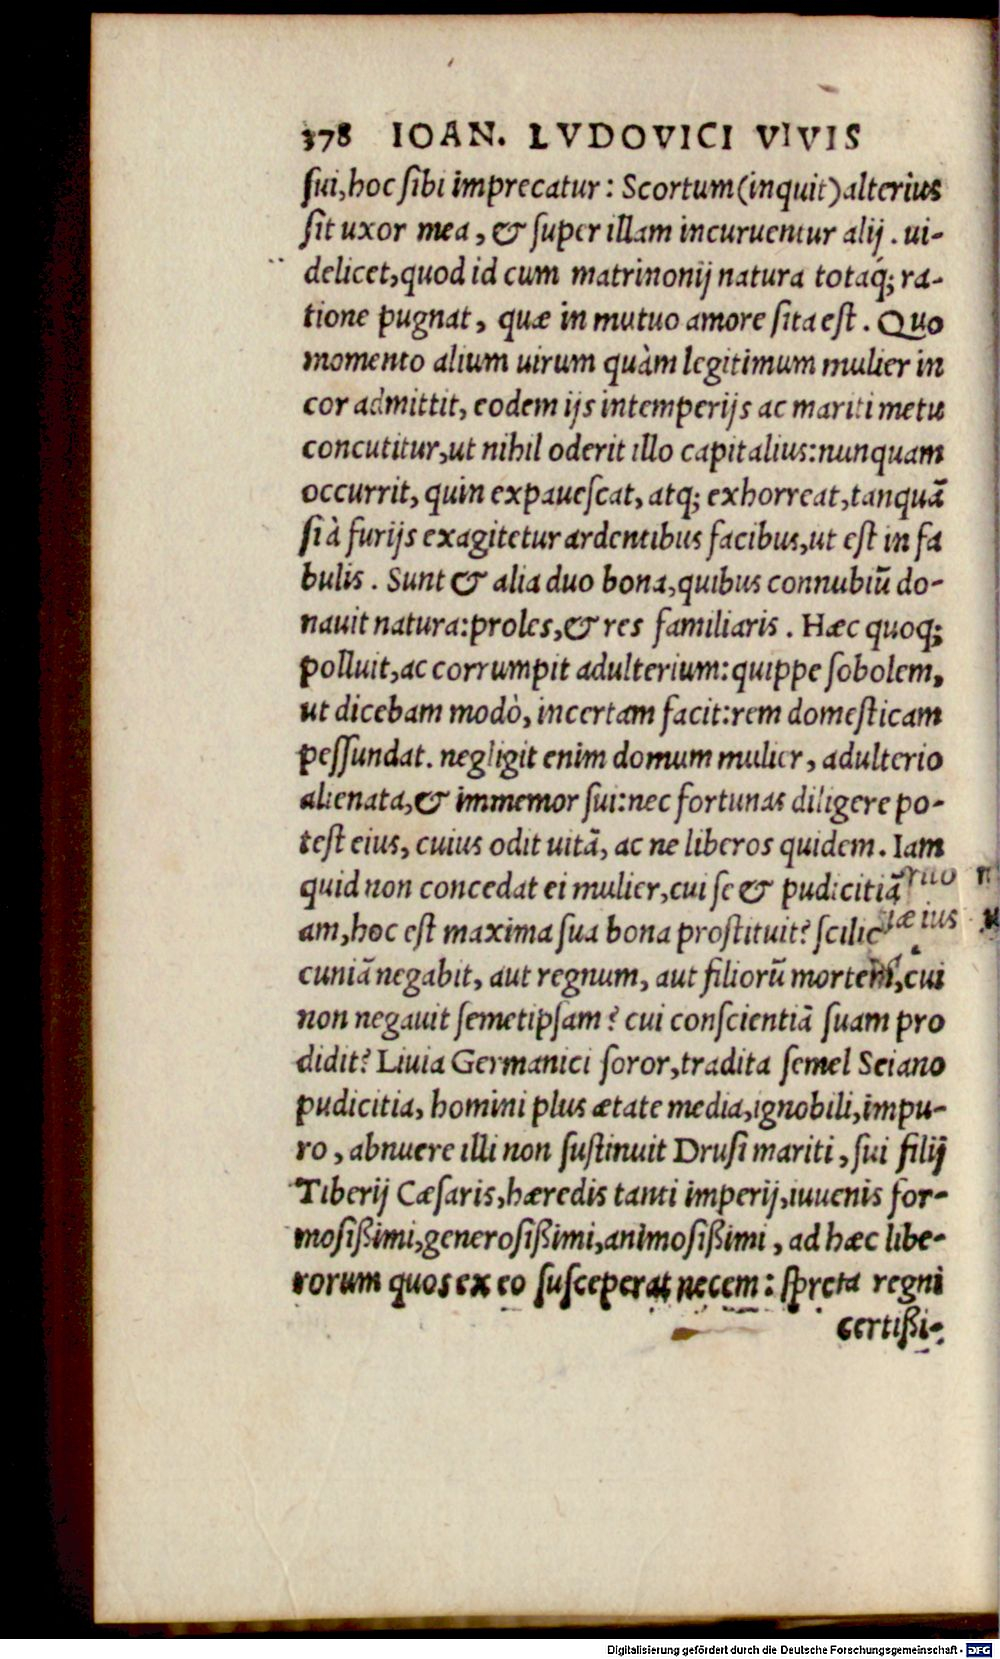 378 IOAN. LVDOVICI VIVIS
ſui, hoc ſibi imprecatur: Scortum (inquit) alterius
ſit uxor mea, & ſuper illam incuruentur alij. ui-
delicet, quod id cum matrinonij natura totaq́; ra-
tione pugnat, quæ in mutuo amore ſita eſt. Quo
momento alium uirum quàm legitimum mulier in
cor admittit, eodem ijs intemperijs ac mariti metu
concutitur, ut nihil oderit illo capitalius: nunquam
occurrit, quin expaueſcat, atq; exhorreat, tanquā
ſi à furijs exagitetur ardentibus facibus, ut eſt in fa
bulis. Sunt & alia duo bona, quibus connubiū do-
nauit natura: proles, & res familiaris. Hæc quoq;
polluit, ac corrumpit adulterium: quippe ſobolem,
ut dicebam modò, incertam facit: rem domeſticam
peſſundat. negligit enim domum mulier, adulterio
alienata, & immemor ſui: nec fortunas diligere po-
teſt eius, cuius odit uitā, ac ne liberos quidem. Iam
quid non concedat ei mulier, cui ſe & pudicitiā
am, hoc eſt maxima ſua bona proſtituit? ſcilic
cuniā negabit, aut regnum, aut filiorū mortem, cui
non negauit ſemetipſam? cui conſcientiā ſuam pro
didit? Liuia Germanici ſoror, tradita ſemel Seiano
pudicitia, homini plus ætate media, ignobili, impu-
ro, abnuere illi non ſuſtinuit Druſi mariti, ſui filij
Tiberij Cæſaris, hæredis tanti imperij, iuuenis for-
moſißimi, generoſißimi, animoſißimi, ad hæc libe-
rorum quos ex eo ſuſceperat necem: ſpreta regni
certißi-
Digitalisierung gefördert durch die Deutsche Forschungsgemeinschaft - DFG